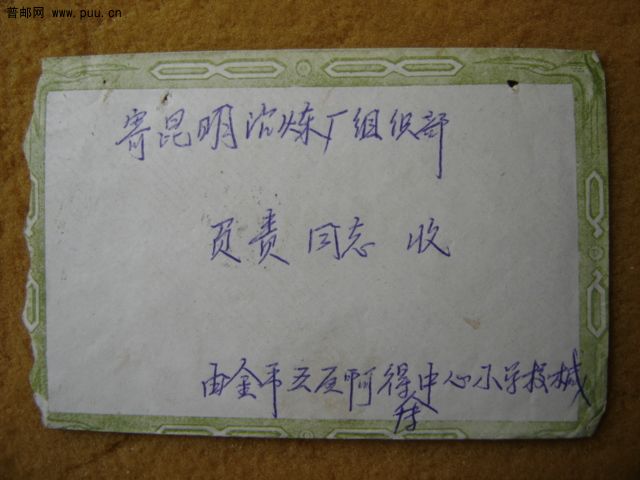 普邮网 www.puu.cn
寄昆明冶炼厂组织部
负责同志 收
由金平五区啊得中心小学校缄